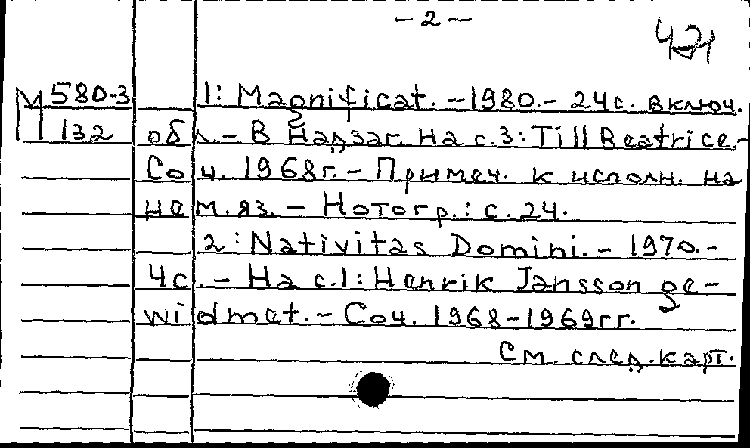 -2-
421
М 580-3 1: Magnificat. -1980.- 24с. включ.
132 обл.- В Надзаг. на с.3: Till Beatrice.-
Соч. 1968г.- Примеч. к исполн. на
нем. яз. - Нотогр.: с. 24.
2: Nativitas Domini. - 1970.-
4с. - На с.1: Henrik Jansson ge-
widmet. - Соч. 1968-1969гг.
См. след. карт.